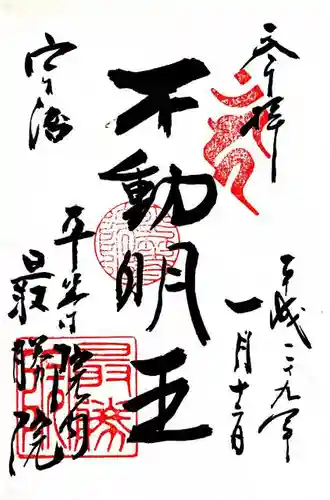 奉拝
平成二十九年
一月十二日
不動明王
宇治
平等院内
最勝院
最勝院